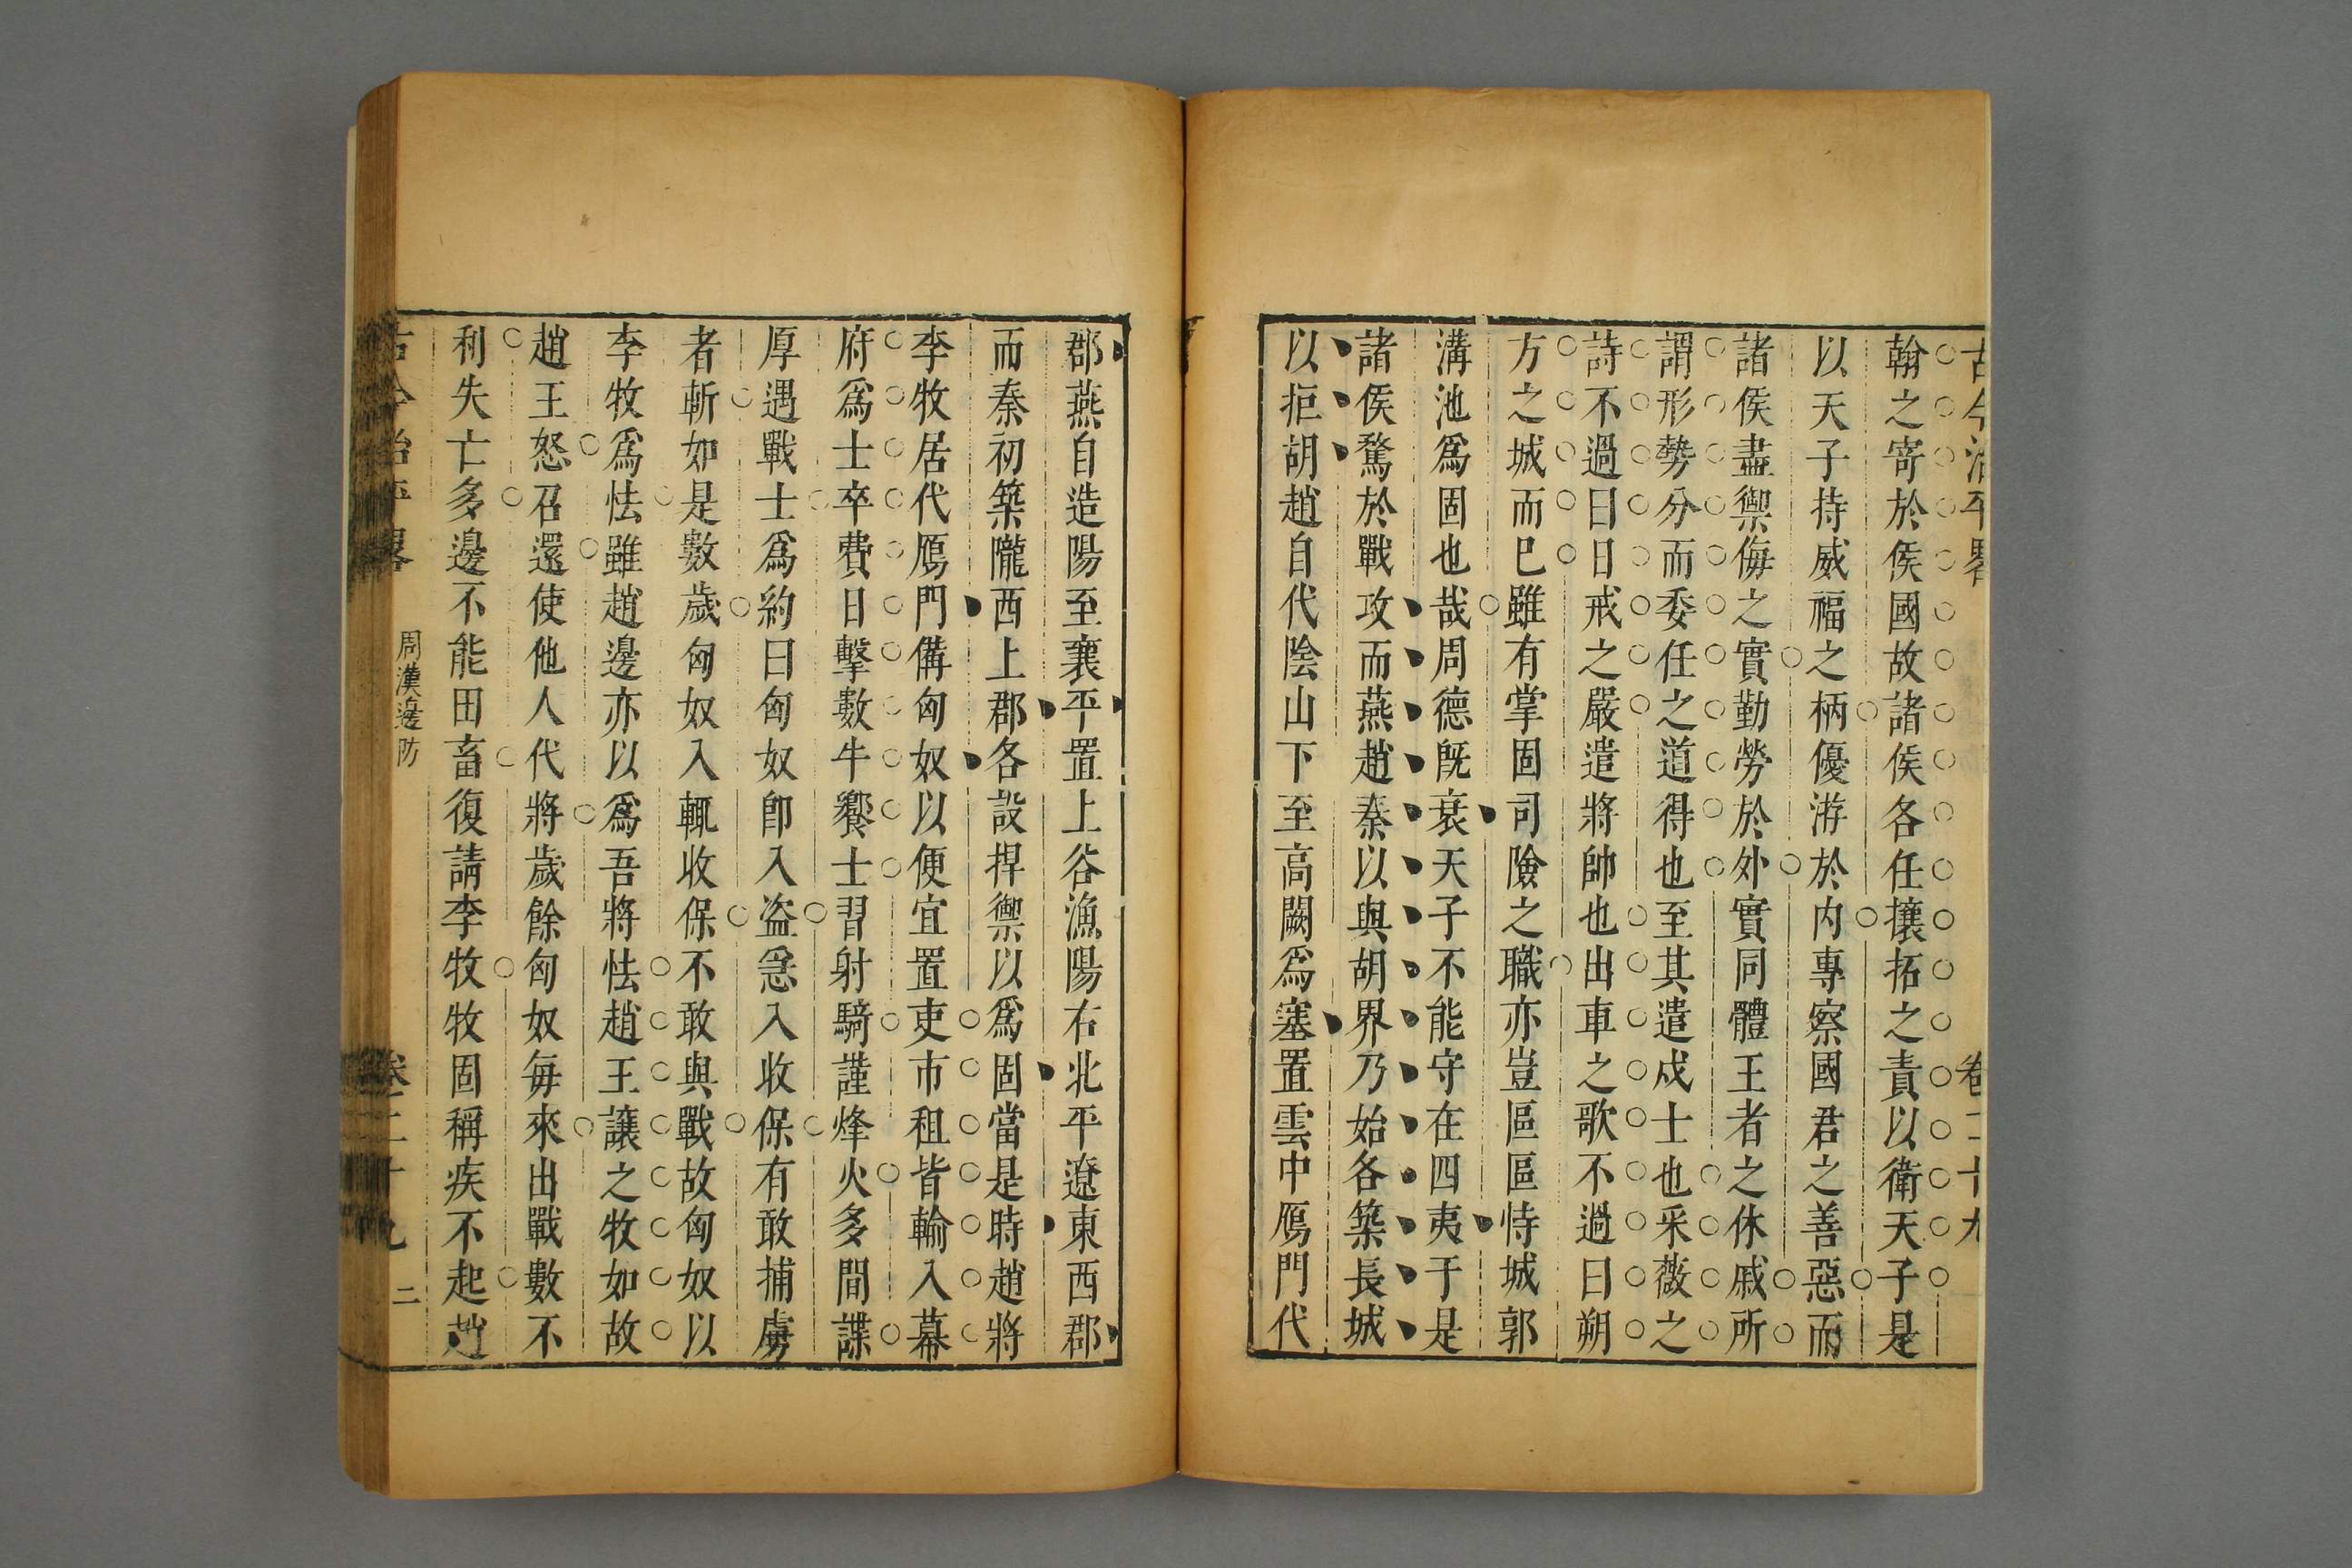 古今治平畧　卷二十九
翰之寄於侯國故諸侯各任攘拓之責以衛天子是
以天子持威福之柄優游於内專察國君之善惡而
諸侯盡禦侮之實勤勞於外實同體王者之休戚所
謂形勢分而委任之道得也至其遣戍士也采薇之
詩不過曰日戒之嚴遣將帥也出車之歌不過曰朔
方之城而已雖有掌固司險之職亦豈區區恃城郭
溝池爲固也哉周德既衰天子不能守在四夷于是
諸侯騖於戰攻而燕趙秦以與胡界乃始各築長城
以拒胡趙自代陰山下至高闕爲塞置雲中鴈門代
郡燕自造陽至襄平置上谷漁陽右北平遼東西郡
而秦初築隴西上郡各設捍禦以爲固當是時趙將
李牧居代鴈門備匈奴以便宜置吏市租皆輸入幕
府爲士卒費日擊數牛饗士習射騎謹烽火多間諜
厚遇戰士爲約曰匈奴卽入盜急入收保有敢捕虜
者斬如是數歲匈奴入輒收保不敢與戰故匈奴以
李牧爲怯雖趙邊亦以爲吾將怯趙王讓之牧如故
趙王怒召還使他人代將歲餘匈奴每來出戰數不
利失亡多邊不能田畜復請李牧牧固稱疾不起趙
古今治平畧　周漢邊防　卷二十九　二